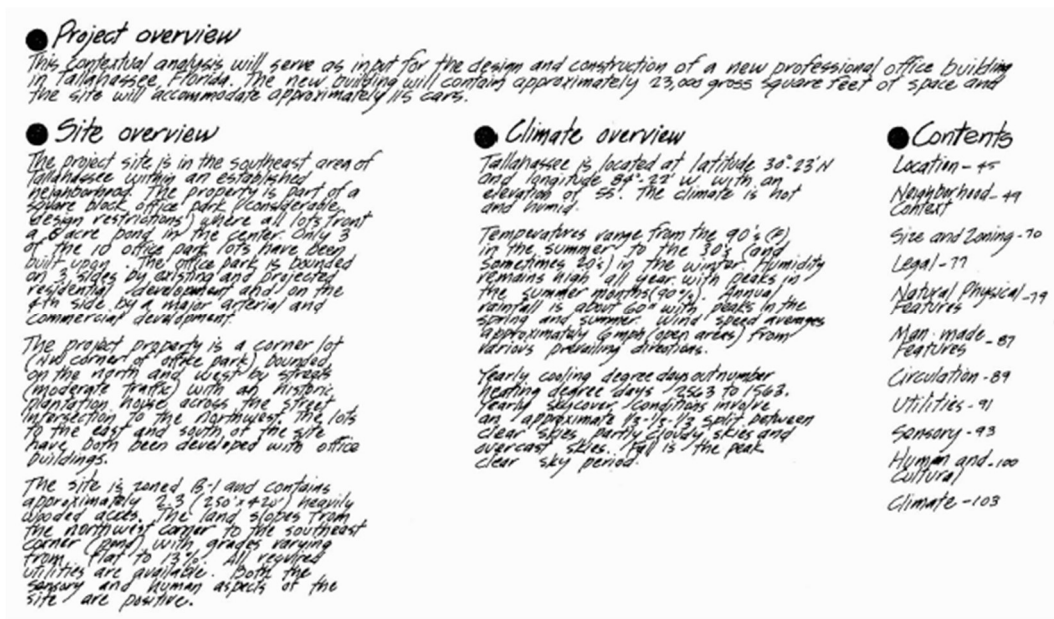 Project overview
This contextual analysis will serve as input for the design and construction of a new professional office building
in Tallahassee, Florida. The new building will contain approximately 23,000 gross square feet of space and
the site will accommodate approximately 115 cars.
Site overview
The project site is in the southeast area of
Tallahassee within an established
neighborhood. The property is part of a
square block office park (considerable
design restrictions) where all lots front
a 6 acre pond in the center. Only 3
of the 10 office park lots have been
built upon. The office park is bounded
on 3 sides by existing and projected
residential development and on the
4th side by a major arterial and
commercial development.
The project property is a corner lot
(NW corner of office park) bounded
on the north and west by streets
(moderate traffic) with an historic
plantation house across the street
intersection to the northwest. The lots
to the east and south of the site
have both been developed with office
buildings.
The site is zoned B-1 and contains
approximately 2.3 (250' x 420') heavily
wooded acres. The land slopes from
the northwest corner to the southeast
corner (pond) with grades varying
from flat to 13%. All required
utilities are available. Both the
sensory and human aspects of the
site are positive.
Climate overview
Tallahassee is located at latitude 30°-23' N
and longitude 84°-22' W. with an
elevation of 55'. The climate is hot
and humid.
Temperatures range from the 90's (F)
in the summer to the 30's (and
sometimes 20's) in the winter. Humidity
remains high all year with peaks in
the summer months (90%). Annual
rainfall is about 60" with peaks in the
spring and summer. Wind speed averages
approximately 6 mph (open areas) from
various prevailing directions.
Yearly cooling degree days outnumber
heating degree days 2563 to 1563.
Yearly skycover conditions involve
an approximate 1/3-1/3-1/3 split between
clear skies, partly cloudy skies and
overcast skies. Fall is the peak
clear sky period.
Contents
Location - 45
Neighborhood - 49
Context
Size and Zoning - 70
Legal - 77
Natural Physical - 79
Features
Man-made - 87
Features
Circulation - 89
Utilities - 91
Sensory - 93
Human and - 100
Cultural
Climate - 103